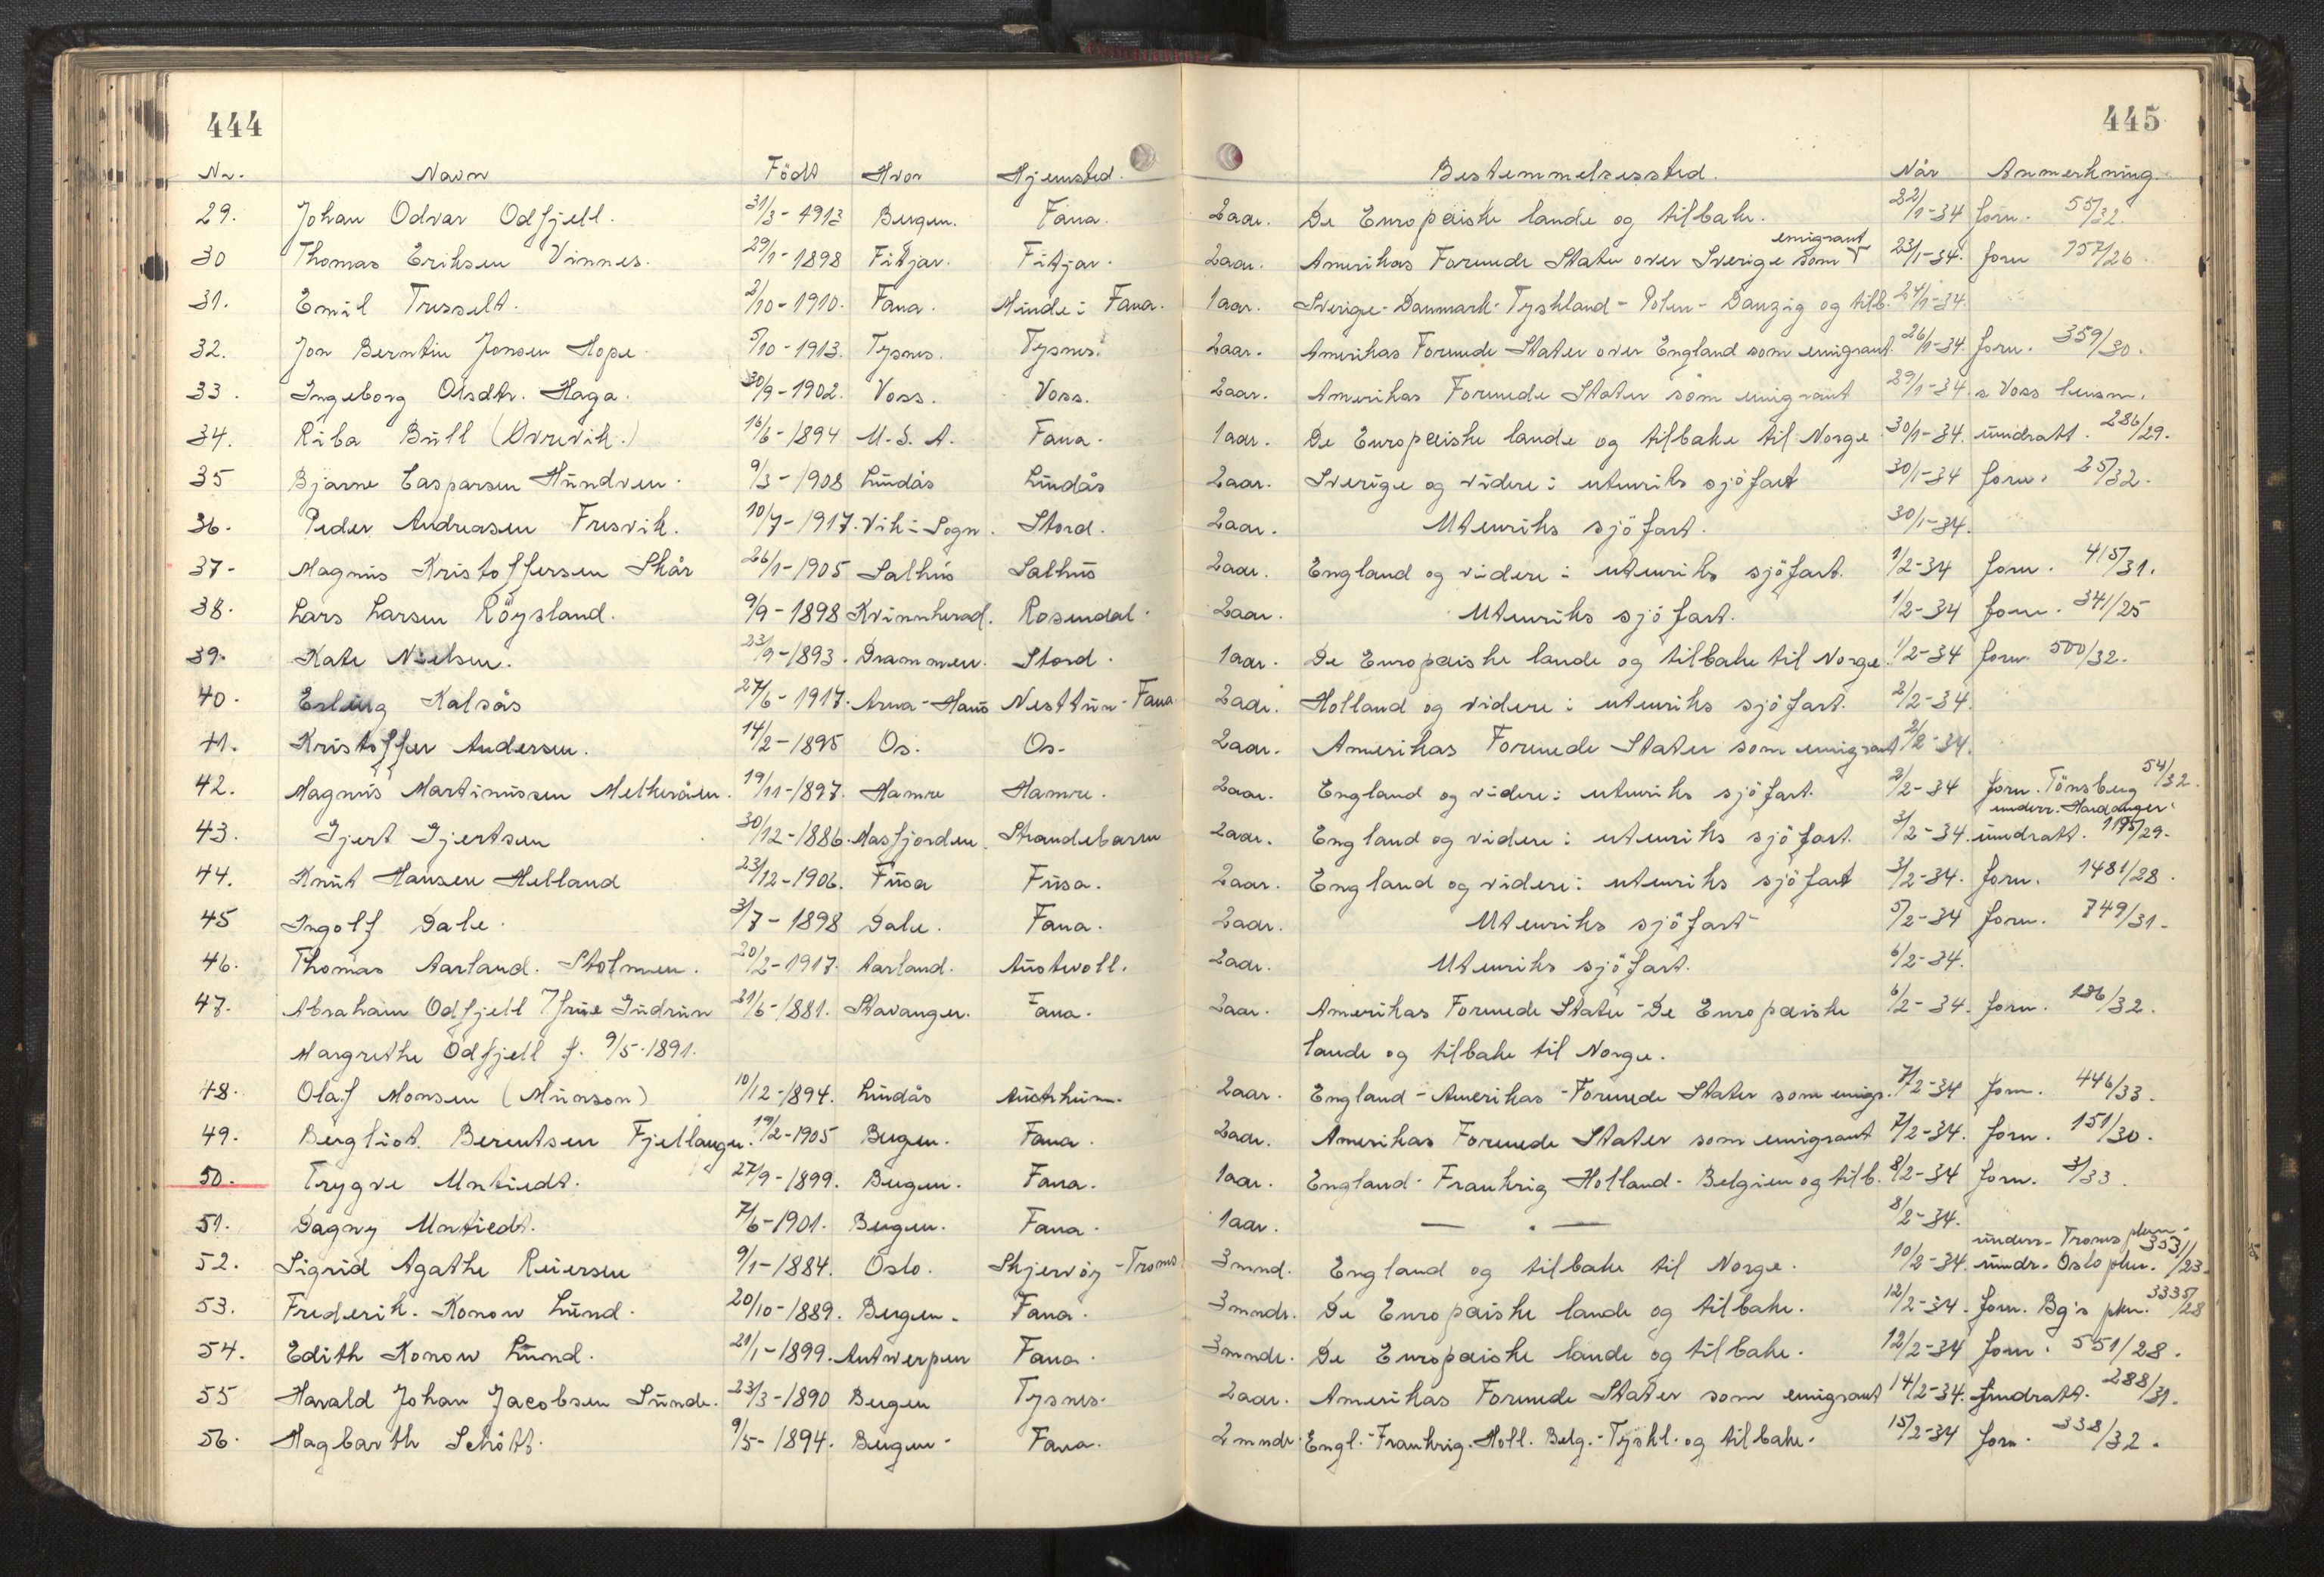 444
Nr. Navn Födt Hvor Hjemsted.
29. Johan Odvar Odfjell. 31/3-1913 Bergen. Fana.
30 Thomas Eriksen Vinnes. 29/1-1898 Fitjar. Fitjar.
31. Emil Trosselt. 2/10-1910. Fana. Minde i Fana.
32. Jon Berntin Jonsen Hope. 5/10-1913. Tysnes. Tysnes.
33. Ingeborg Olsdtr. Haga. 30/9-1902. Voss. Voss.
34. Riba Bull (Övrevik.) 16/6-1894 U.S.A. Fana.
35 Bjarne Casparsen Hundven. 9/3-1908 Lindås Lindås
36. Peder Andreasen Fresvik. 10/7-1917. Vik i Sogn. Stord.
37- Magnus Kristoffersen Skår 26/1-1905 Salhus Salhus
38. Lars Larsen Röysland. 9/9-1898 Kvinnherad. Rosendal.
39. Kate Nielsen. 23/9-1893. Drammen. Stord.
40. Erling Kalsås 27/6-1917. Arna-Haus Nesttun-Fana
41. Kristoffer Andersen. 14/2-1895 Os. Os-
42. Magnus Martinussen Melkeråen. 19/11-1897. Hamre Hamre.
43. Gjert Gjertsen 30/12-1886. Masfjorden. Strandebarm
44. Knut Hansen Helland 23/12-1906. Fusa Fusa.
45 Ingolf Dale. 3/7-1898 Dale. Fana.
46. Thomas Aarland. Stolmen. 20/2-1917. Aarland. Austevoll.
47. Abraham Odfjell 7 frue Gudrun 21/6-1881. Stavanger. Fana.
Margrethe Odfjell f. 9/5-1891.
48. Olaf Monsen (Munson) 10/12-1894. Lindås Austrheim.
49. Bergliot Berentsen Fjellanger. 19/2-1905 Bergen. Fana.
50. Trygve Untiedt. 27/9-1899. Bergen. Fana.
51. Dagny Untiedt. 7/6-1901. Bergen. Fana.
52. Sigrid Agathe Reiersen 9/1-1884. Oslo. Skjervöy-Troms.
53. Frederik. Konow Lund. 20/10-1889. Bergen. Fana.
54. Edith Konow Lund. 21/1-1899. Antwerpen Fana.
55 Harald Johan Jacobsen Sunde. 23/3-1890 Bergen Tysnes.
56. Hagbarth Schött. 9/5-1894. Bergen. Fana.
445
Bestemmelsessted. Når Anmerkning.
2 aar. De Europæiske lande og tilbake. 22/1-34 forn. 55/32.
emigrant
2 aar. Amerikas Forenede Stater over Sverige som 23/1-34. forn 157/26.
1 aar. Sverige-Danmark-Tyskland-Polen-Danzig og tilb. 24/1-34.
2 aar. Amerikas Forenede Stater over England som emigrant. 26/1-34. forn. 359/30.
2 aar. Amerikas Forenede Stater som emigrant 29/1-34. a Voss lensm.
1 aar. De Europæiske lande og tilbake til Norge 30/1-34. inndratt. 286/29.
2 aar. Sverige og videre i utenriks sjöfart 30/1-34 forn. 25/32.
2 aar. Utenriks sjöfart. 30/1-34.
2 aar. England og videre i utenriks sjöfart. 1/2-34 forn. 415/31.
2 aar. Utenriks sjöfart. 1/2-34 forn. 341/25
1 aar. De Europæiske lande og tilbake til Norge. 1/2-34 forn. 500/32.
2 aar. Holland og videre i utenriks sjöfart. 2/2-34.
2 aar. Amerikas Forenede Stater som emigrant 2/2-34.
2 aar. England og videre i utenriks sjöfart. 2/2-34 forn. Tönsberg 54/32.
underr. Hardanger.
2 aar. England og videre i utenriks sjöfart. 3/2-34. inndratt. 1195/29-
2 aar. England og videre i utenriks sjöfart 3/2-34. forn. 1481/28.
2 aar. Utenriks sjöfart 5/2-34 forn. 749/31-
2 aar. Utenriks sjöfart. 6/2-34.
2 aar. Amerikas Forenede Stater-De Europæiske 6/2-34. forn. 126/32.
lande og tilbake til Norge.
2 aar. England-Amerikas-Forenede Stater som emigr. 7/2-34 forn. 446/33.
2 aar. Amerikas Forenede Stater som emigrant 7/2-34. forn. 151/30.
1 aar. England-Frankrig Holland-Belgien og tilb. 8/2-34 forn. 3/33.
1 aar. — . — 8/2-34.
underr. Troms pkm.
3 mnd. England og tilbake til Norge. 10/2-34. inndr. Oslo pkm. 3531/23.
3 mndr. De Europæiske lande og tilbake. 12/2-34. forn. Bg's pkm. 3335/28
3 mndr. De Europæiske lande og tilbake. 12/2-34 forn. 551/28.
2 aar. Amerikas Forenede Stater som emigrant 14/2-34. inndratt. 288/31.
2 mndr. Engl.-Frankrig. Holl. Belg.-Tyskl. og tilbake. 15/2-34 forn. 338/32.